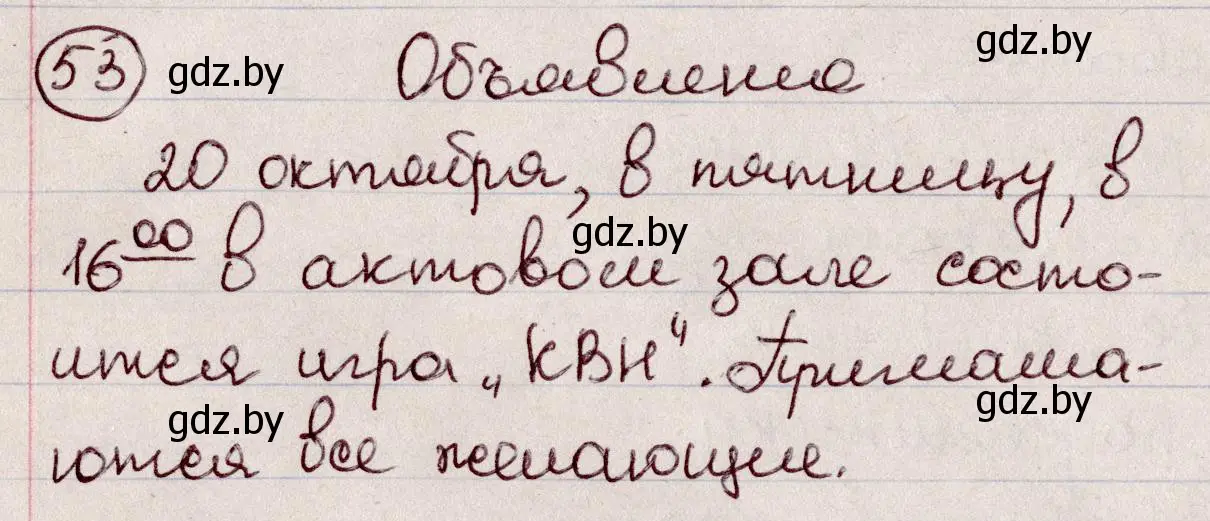 53 gdz.by Объявление gdz.by
20 октября, в пятницу, в
16⁰⁰ в актовом зале состо-
gdz.by
ится игра „КВН“. Приглаша-
gdz.by gdz.by
ются все желающие.